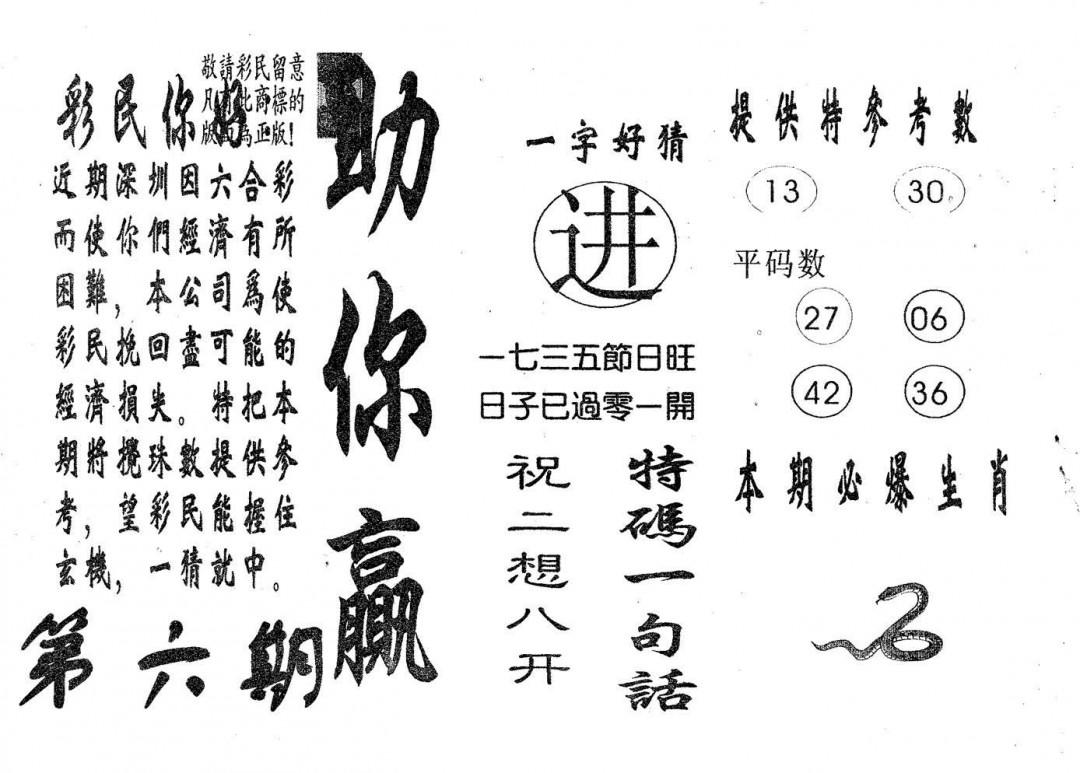 敬請彩民留意
凡有此商標的
版面為正版！
彩民你好
近期深圳因六合彩
而使你們經濟有所
困難，本公司爲使
彩民挽回盡可能的
經濟損失。特把本
期將攪珠數提供參
考，望彩民能握住
玄機，一猜就中。
第六期
助你贏
一字好猜
进
一七三五節日旺
日子已過零一開
特碼一句話
祝二想八开
提供特參考數
13 30
平码数
27 06
42 36
本期必爆生肖